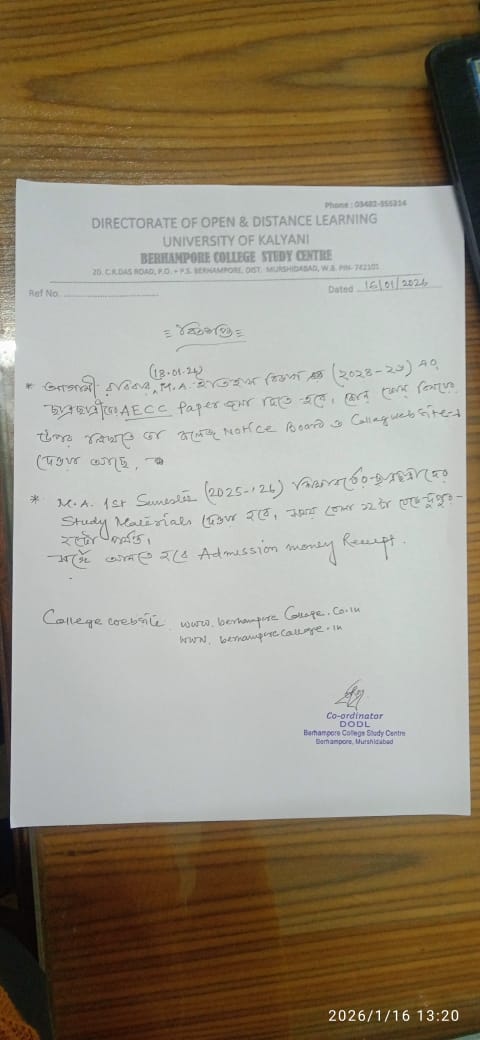 Phone : 03482-355314
DIRECTORATE OF OPEN & DISTANCE LEARNING
UNIVERSITY OF KALYANI
BERHAMPORE COLLEGE STUDY CENTRE
20. C.R.DAS ROAD, P.O. + P.S. BERHAMPORE, DIST. MURSHIDABAD, W.B. PIN- 742101
Ref No. Dated 16/01/2026
= বিজ্ঞপ্তি =
* আগামী রবিবার (18.01.26), M.A. ইতিহাস বিভাগ এর
ছাত্রছাত্রীদের AECC Paper জমা দিতে হবে,
তা কলেজ Notice Board ও College website-এ
দেওয়া আছে,
* M.A. 1st Semester (2025-'26) ছাত্রছাত্রীদের
Study Materials দেওয়া হবে, সময় বেলা ১২টা থেকে দুপুর-
পর্যন্ত।
সঙ্গে আনতে হবে Admission money Receipt.
College website www.berhampore College.Co.in
www.berhamporecollege.in
Co-ordinator
DODL
Berhampore College Study Centre
Berhampore, Murshidabad
2026/1/16 13:20